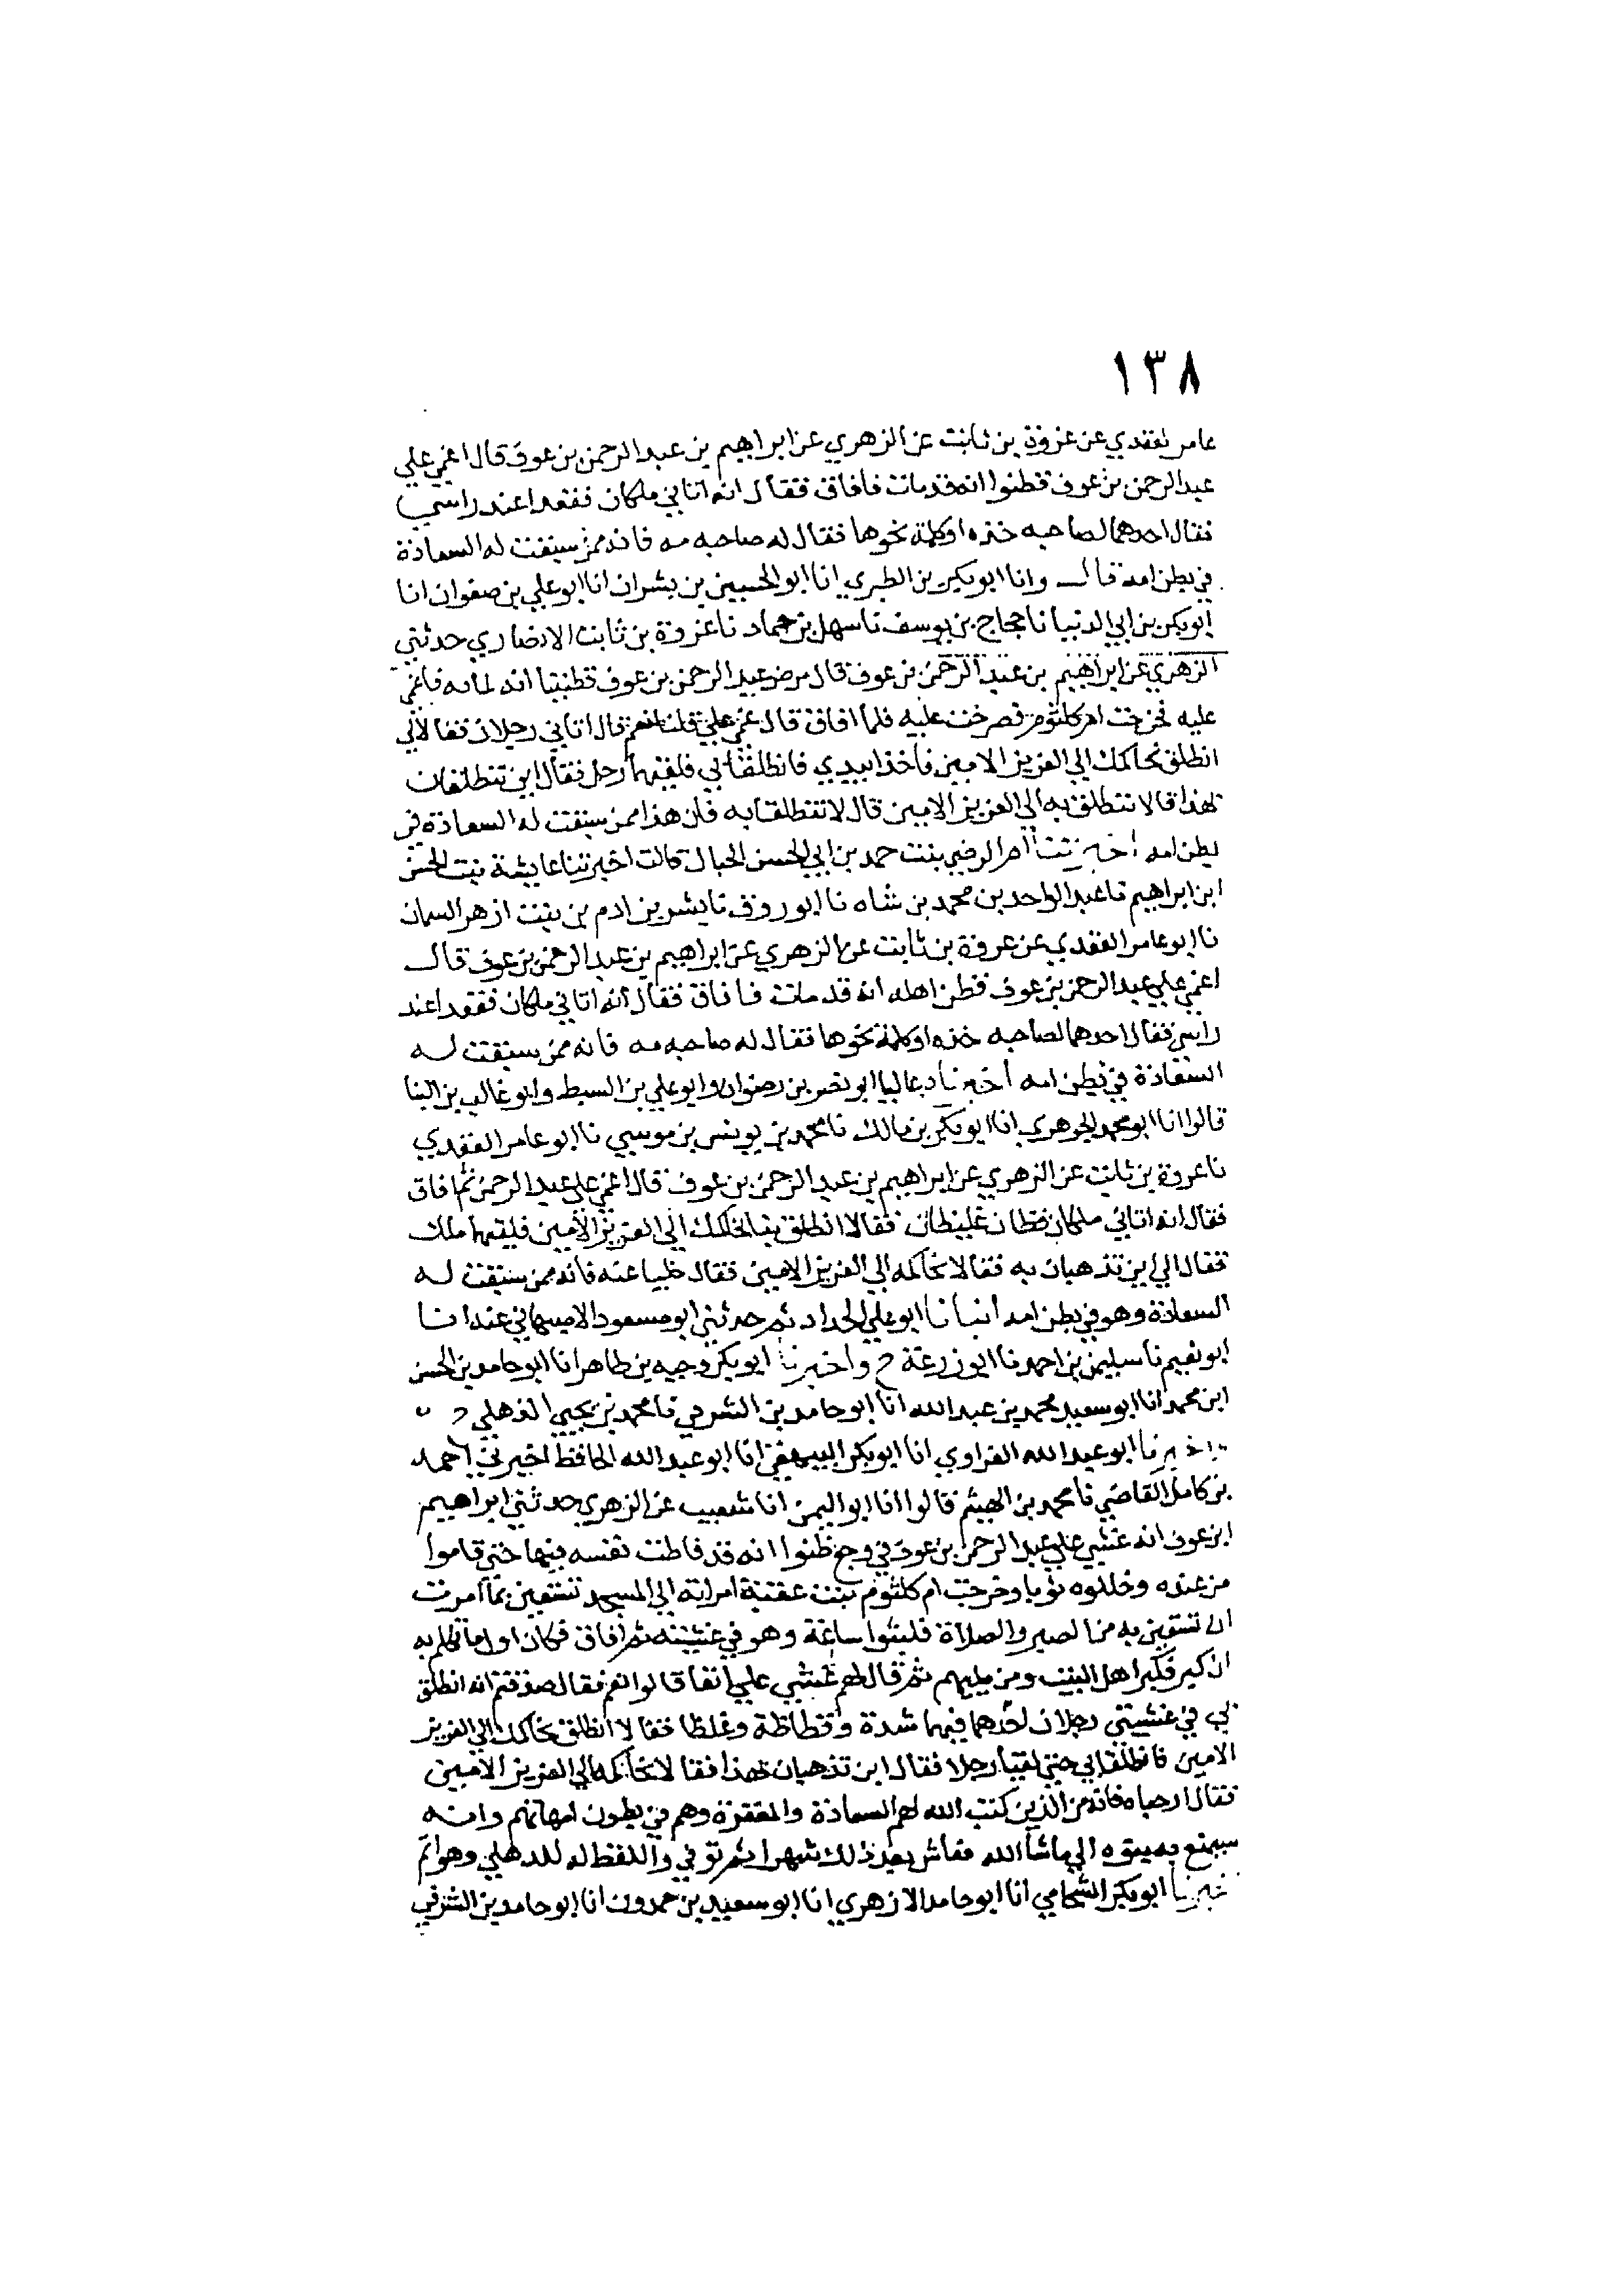 ١٣٨
عامر لعقدي عن عزوة بن ثابت عن الزهري عن ابراهيم بن عبد الرحمن بن عوف قال اغمي علي
عبد الرحمن بن عوف فظنوا انه قد مات فافاق فقال انه اتاني ملكان فقعدا عند راسي
فقال احدهما لصاحبه خذه او كلمة نحوها فقال له صاحبه مه فانه ممن سبقت له السعادة
في بطن امه قال وانا ابو بكر بن الطبري انا ابو الحسين بن بشران انا ابو علي بن صفوان انا
ابو بكر بن ابي الدنيا نا حجاج بن يوسف نا سهل بن حماد نا عزوة بن ثابت الانصاري حدثني
الزهري عن ابراهيم بن عبد الرحمن بن عوف قال مرض عبد الرحمن بن عوف فظننا انه لما به فاغمي
عليه فخرجت ام كلثوم فصرخت عليه فلما افاق قال غمي علي قلنا نعم قال اتاني رجلان فقالا لي
انطلق نحاكمك الي العزيز الامين فاخذا بيدي فانطلقا بي فلقيهما رجل فقال اين تنطلقان
بهذا قالا ننطلق به الي العزيز الامين قال لا تنطلقا به فان هذا ممن سبقت له السعادة في
بطن امه اخبرتنا ام الرضي بنت حمد بن ابي الحسن الحبال قالت اخبرتنا عايشة بنت الحسن
ابن ابراهيم نا عبد الواحد بن محمد بن شاه نا ابو روق نا بشر بن ادم بن بنت ازهر السمان
نا ابو عامر العقدي عن عروة بن ثابت عن الزهري عن ابراهيم بن عبد الرحمن بن عوف قال
اغمي علي عبد الرحمن بن عوف فظن اهله انه قد مات فافاق فقال انه اتاني ملكان فقعدا عند
راسي فقال احدهما لصاحبه خذه او كلمة نحوها فقال له صاحبه مه فانه ممن سبقت له
السعادة في بطن امه اخبرنا عاليا ابو نصر بن رضوان وابو علي بن السبط وابو غالب بن البنا
قالوا انا ابو محمد الجوهري انا ابو بكر بن مالك نا محمد بن يونس بن موسي نا ابو عامر العقدي
نا عروة بن ثابت عن الزهري عن ابراهيم بن عبد الرحمن بن عوف قال اغمي علي عبد الرحمن ثم افاق
فقال انه اتاني ملكان فظان غليظان فقالا انطلق بنا نحاكمك الي العزيز الامين فلقيهما ملك
فقال الي اين تذهبان به فقالا نحاكمه الي العزيز الامين فقال خليا عنه فانه ممن سبقت له
السعادة وهو في بطن امه انبانا ابو علي الحداد ثم حدثني ابو مسعود الاصبهاني عنه انا
ابو نعيم نا سليمن بن احمد نا ابو زرعة ح واخبرنا ابو بكر وجيه بن طاهر انا ابو حامد بن الحسن
ابن محمد انا ابو سعيد محمد بن عبد الله انا ابو حامد بن الشرقي نا محمد بن يحيي الذهلي ح
واخبرنا ابو عبد الله الفراوي انا ابو بكر البيهقي انا ابو عبد الله الحافظ اخبرني احمد
بن كامل القاضي نا محمد بن الهيثم قالوا انا ابو اليمن انا شعيب عن الزهري حدثني ابراهيم
ابن عوف انه غشي علي عبد الرحمن بن عوف في وجع ظنوا انه قد فاظت نفسه فيها حتي قاموا
من عنده وجللوه ثوبا وخرجت ام كلثوم بنت عقبة امراته الي المسجد تستعين بما امرت
ان تستعين به من الصبر والصلاة فلبثوا ساعة وهو في غشيته ثم افاق فكان اول ما تكلم به
ان كبر فكبر اهل البيت ومن يليهم ثم قال لهم غشي علي انفا قالوا نعم فقال صدقتم انه انطلق
بي في غشيتي رجلان احدهما فيهما شدة وفظاظة وغلظا فقالا انطلق نحاكمك الي العزيز
الامين فانطلقا بي حتي لقيا رجلا فقال اين تذهبان بهذا فقالا نحاكمه الي العزيز الامين
فقال ارجعاه فانه من الذين كتب الله لهم السعادة والمغفرة وهم في بطون امهاتهم وانه
سيمتع به بنوه الي ما شا الله فعاش بعد ذلك شهرا ثم توفي واللفظ له للذهلي وهو اتم
اخبرنا ابو بكر الشحامي انا ابو حامد الازهري انا ابو سعيد بن حمدون انا ابو حامد بن الشرقي